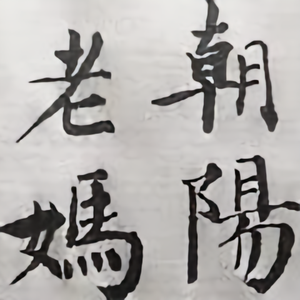 朝陽
老媽